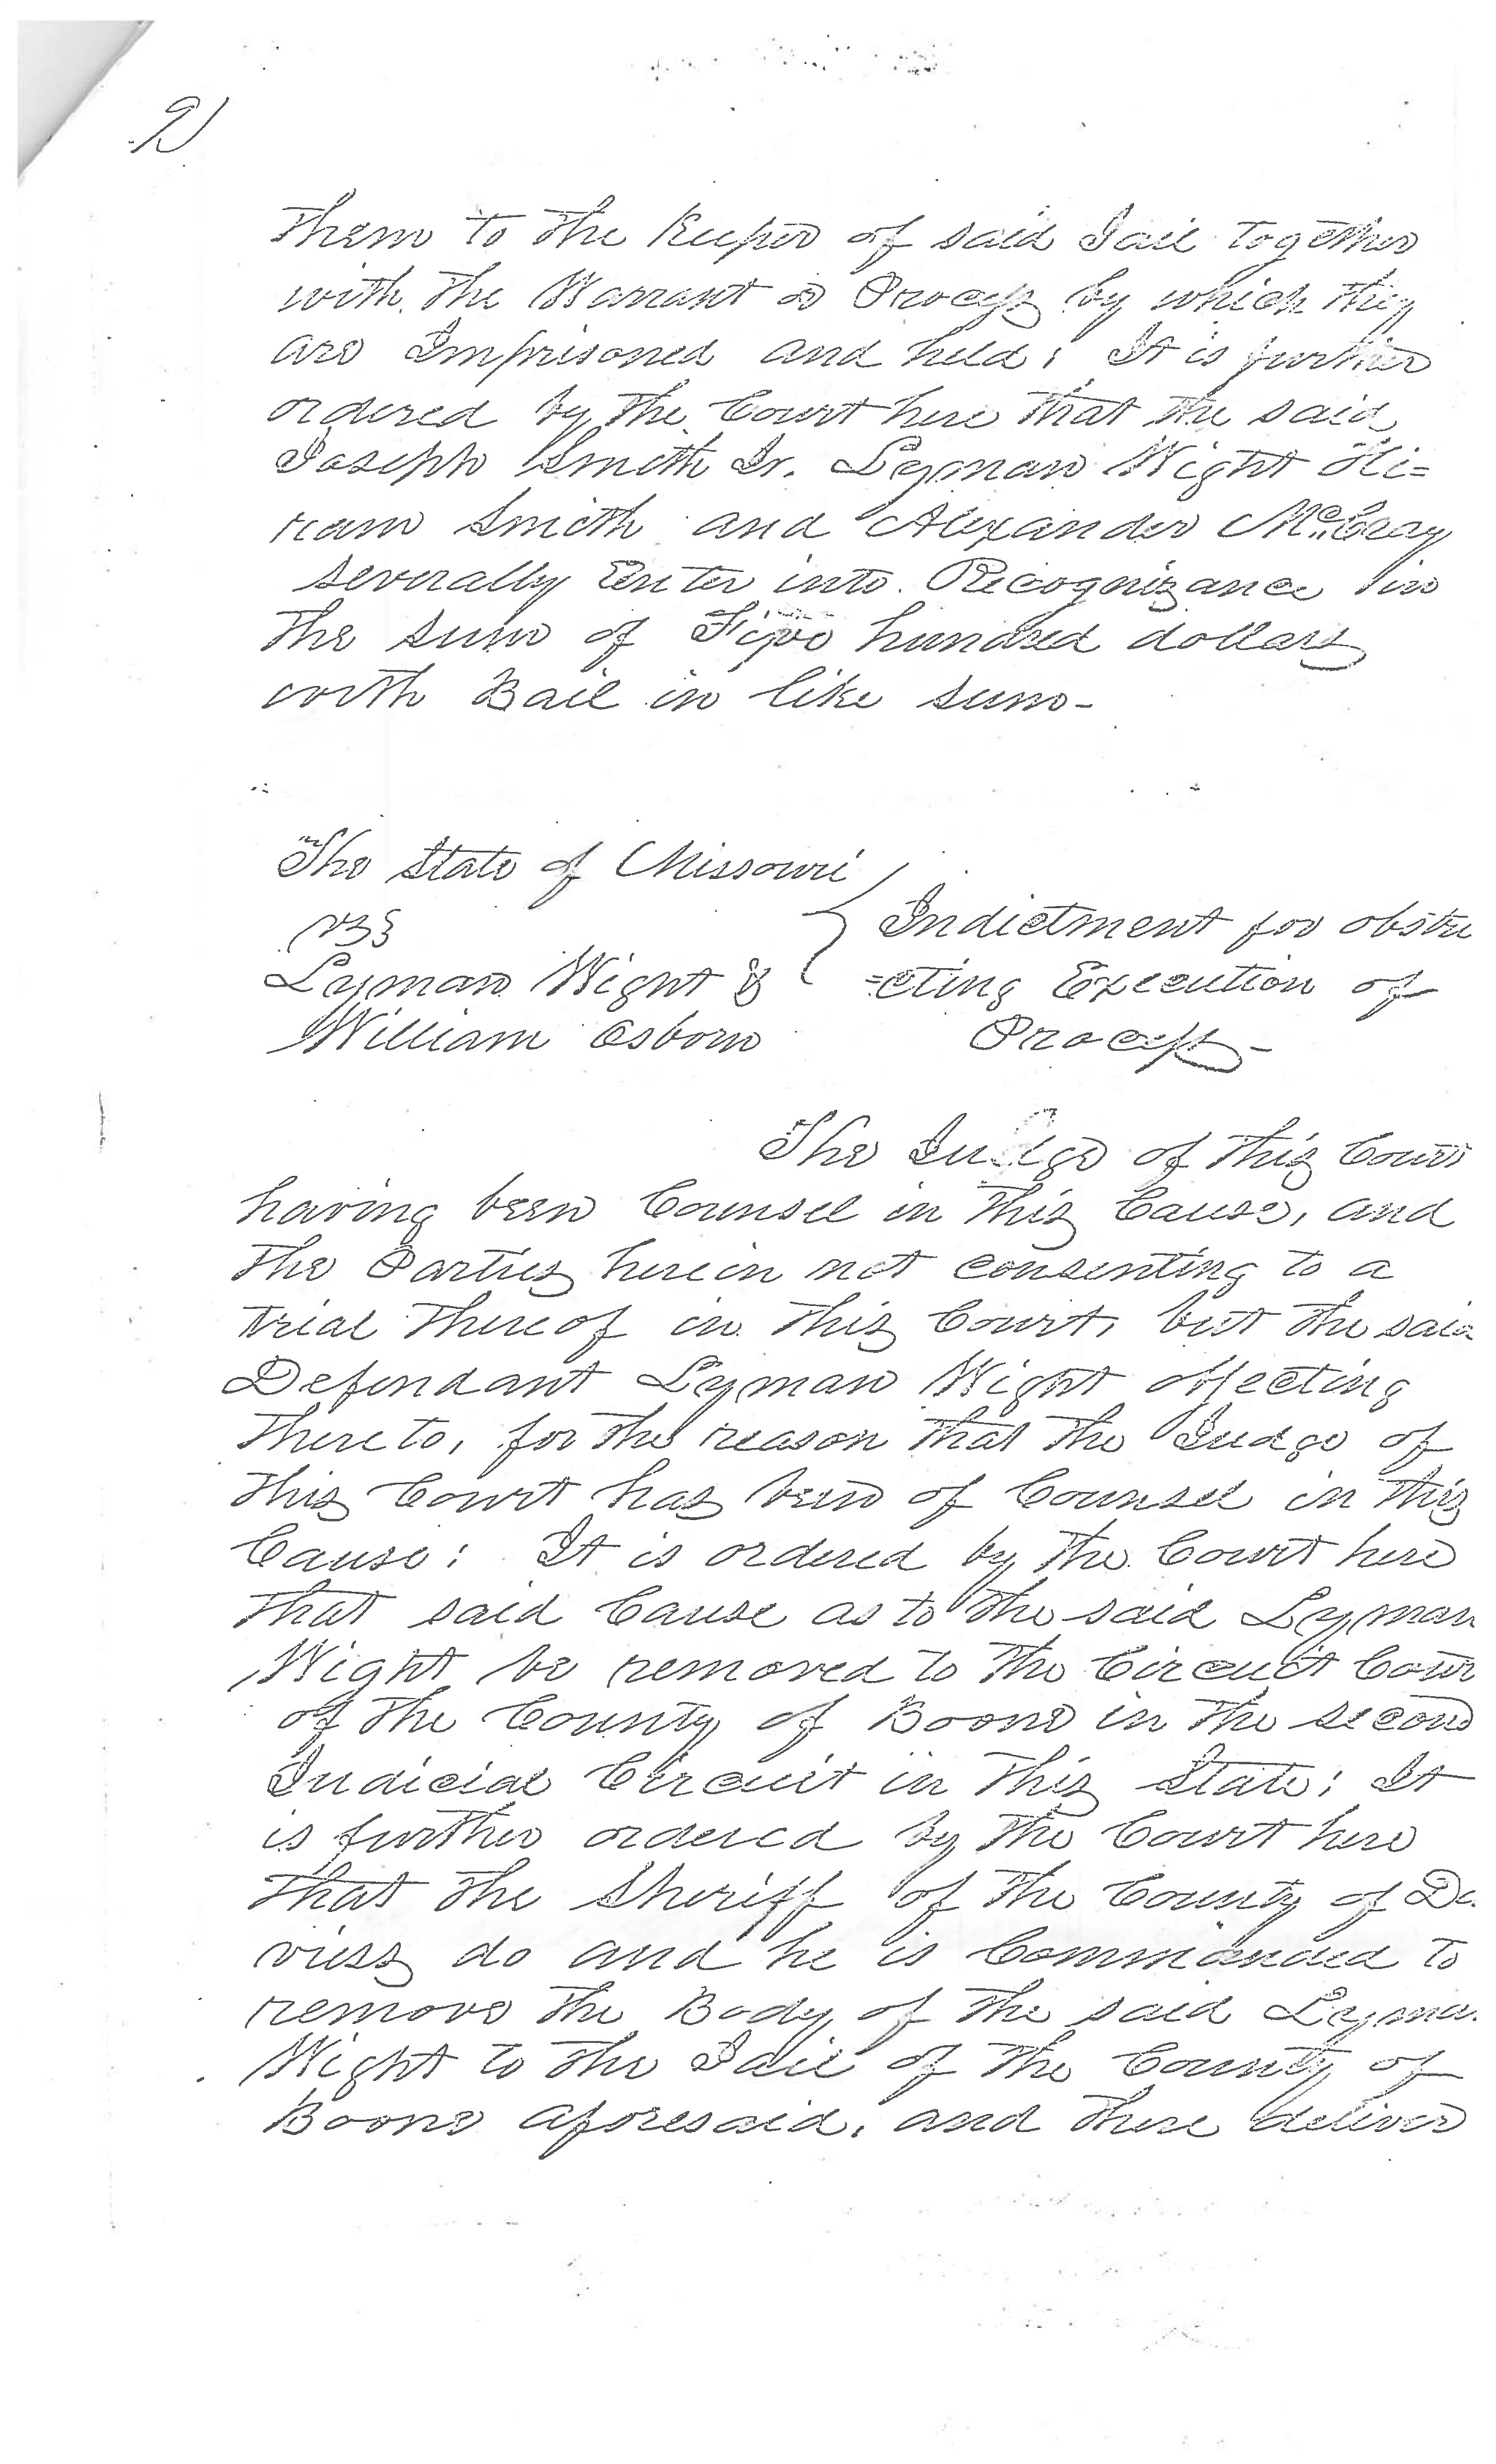 2)
them to the Keeper of said Jail together
with the Warrant or Process by which they
are Imprisoned and held; It is further
ordered by the Court here that the said
Joseph Smith Jr. Lyman Wight Hi=
ram Smith and Alexander McCray
severally Enter into Recognizance in
the sum of Five hundred dollars
with Bail in like sum-
The State of Missouri
vs
Lyman Wight &
William Osborn
Indictment for obstru
=cting Execution of
Process-
The Judge of this Court
having been Counsel in this Cause, and
the Parties herein not consenting to a
trial thereof in this Court, but the said
Defendant Lyman Wight objecting
thereto, for the reason that the Judge of
this Court has been of Counsel in this
Cause: It is ordered by the Court here
that said Cause as to the said Lyman
Wight be removed to the Circuit Cour
of the County of Boone in the second
Judicial Circuit in this State; It
is further ordered by the Court here
that the Sheriff of the County of Da
viess do and he is Commanded to
remove the Body of the said Lyma
Wight to the Jail of the County of
Boone aforesaid, and there deliver